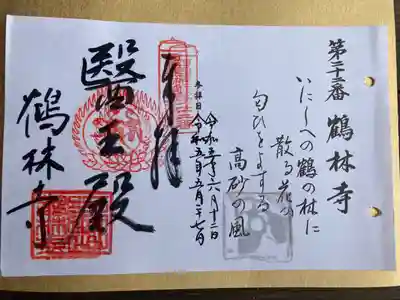 第二十三番 鶴林寺
いにしへの鶴の林に
散る花の
匂ひをよする
高砂の風
奉拝
令和五年六月十二日
参拝日 令和五年五月二十七日
醫王殿
鶴林寺